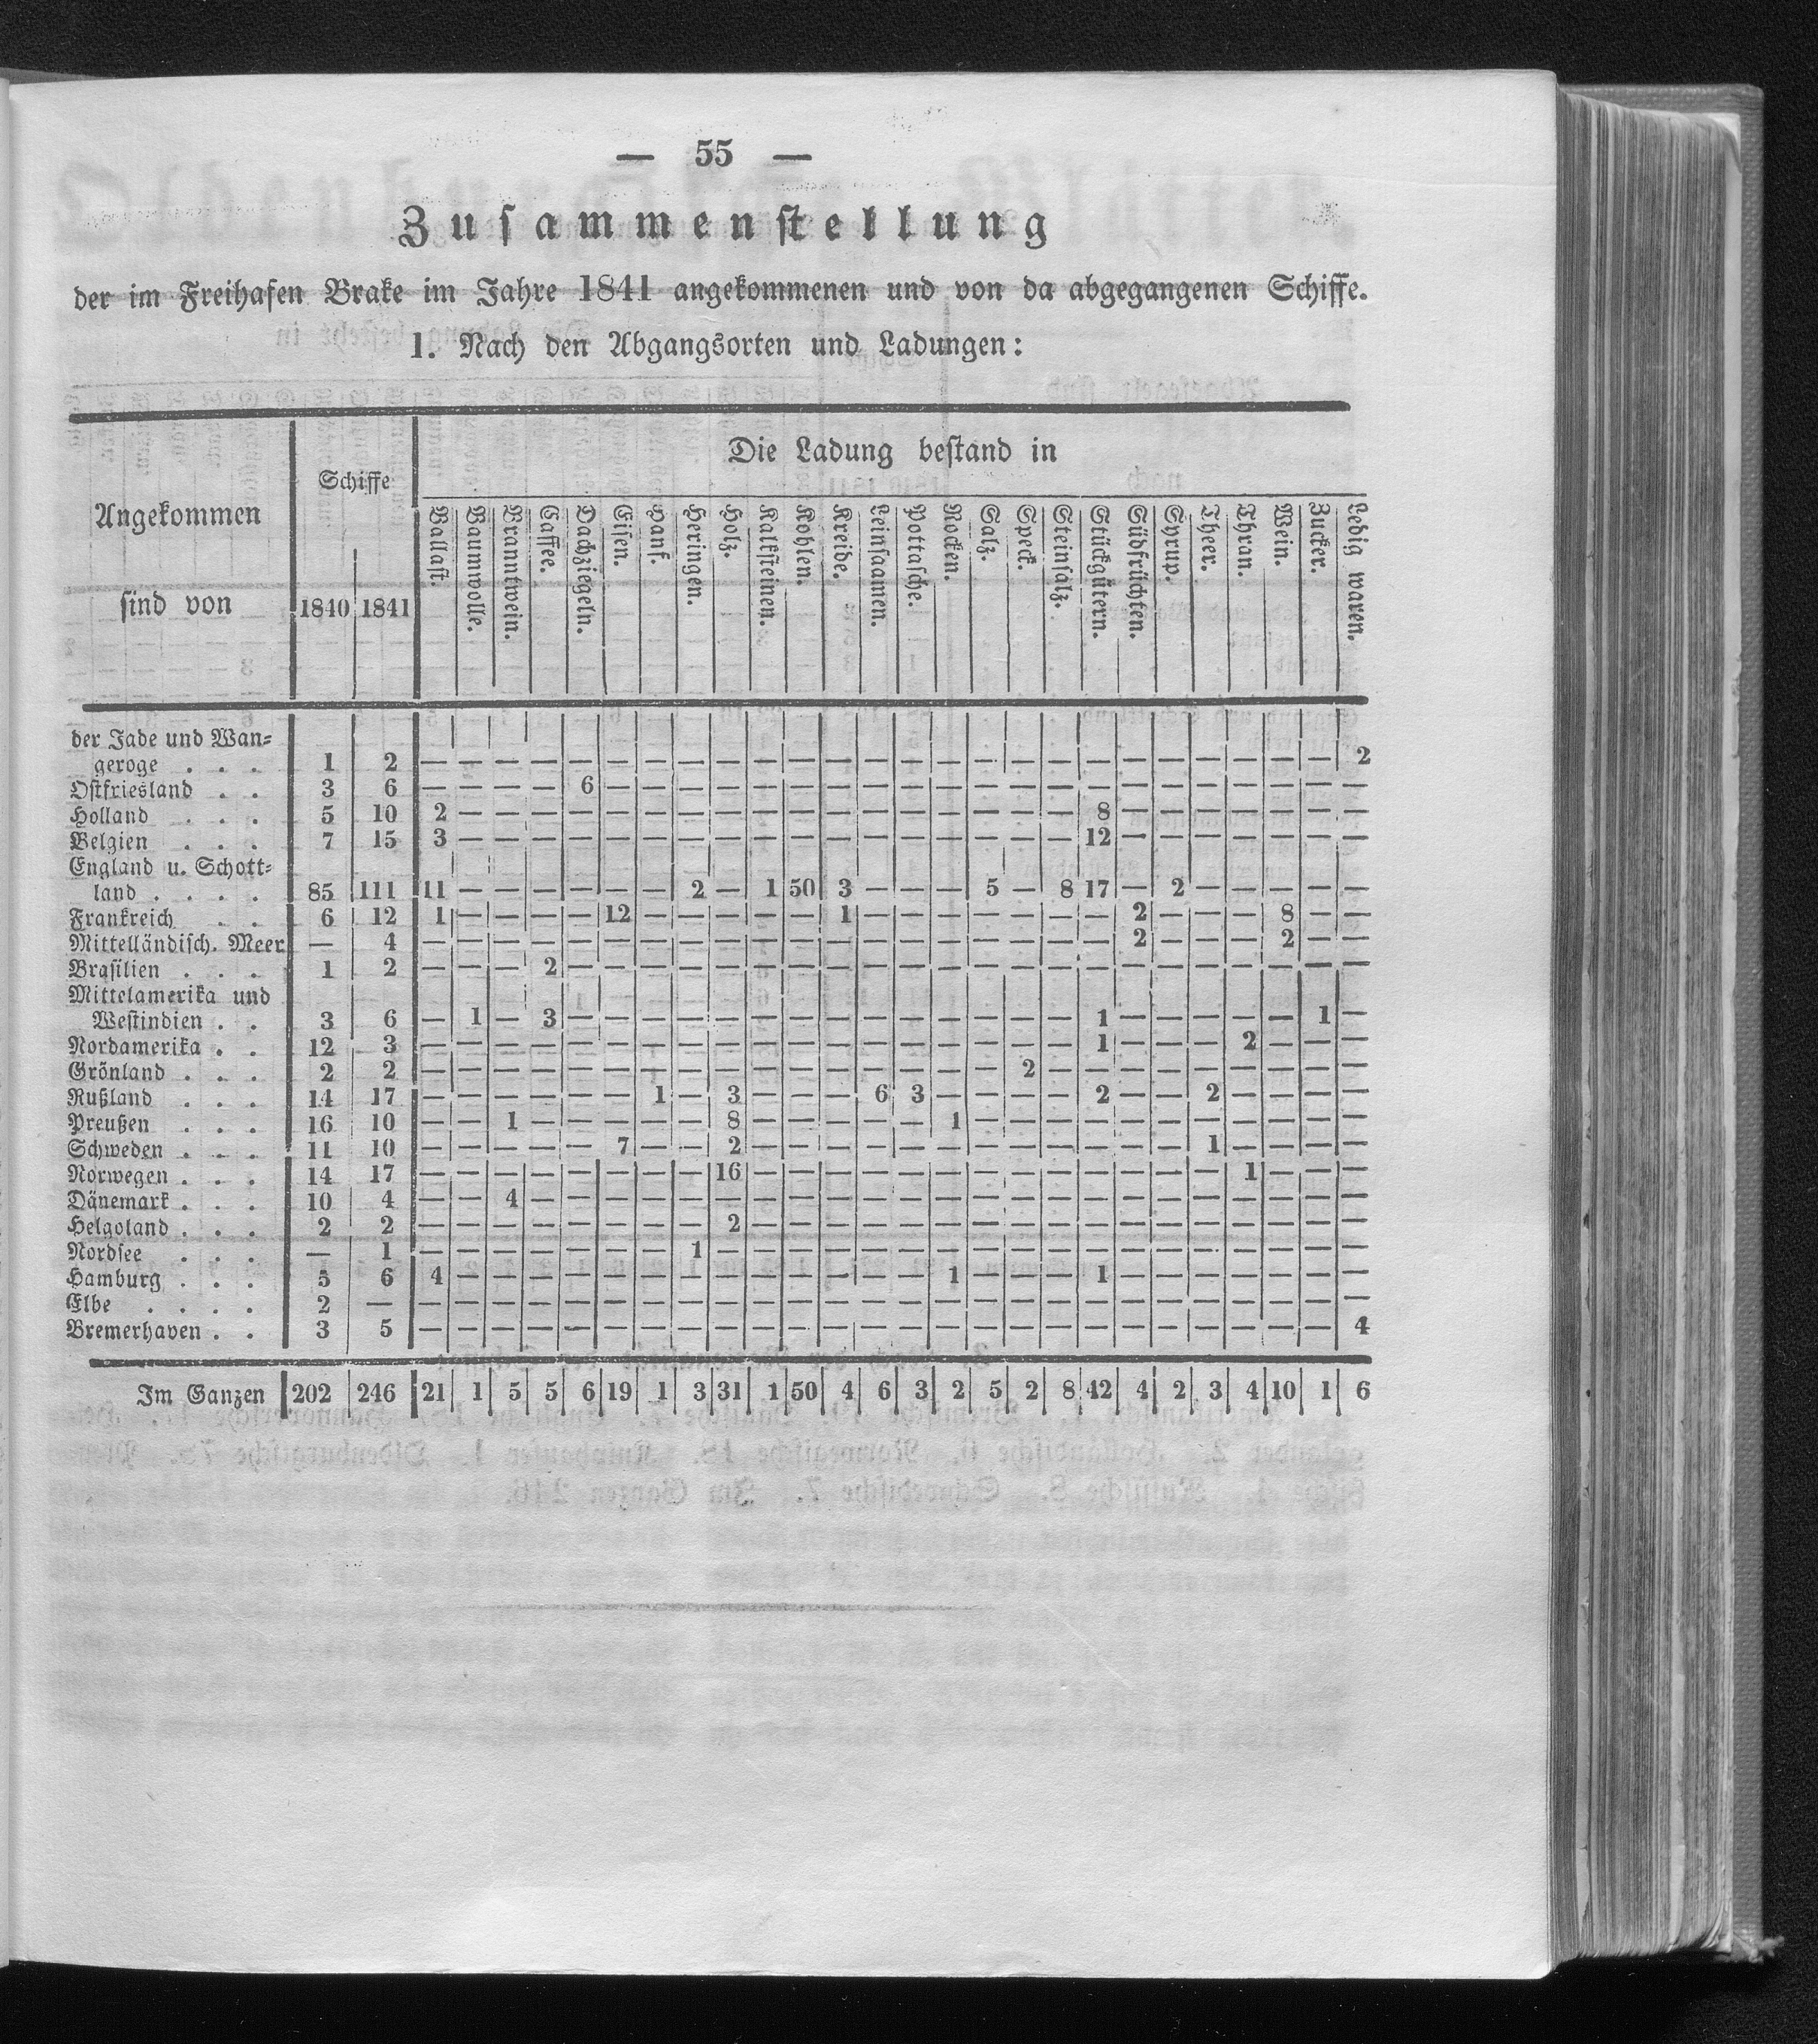 — 55 —
Zusammenstellung
der im Freihafen Brake im Jahre 1841 angekommenen und von da abgegangenen Schiffe.
1. Nach den Abgangsorten und Ladungen:
Angekommen sind von | Schiffe 1840 | 1841 | Die Ladung bestand in
Ballast. | Baumwolle. | Branntwein. | Caffee. | Dachziegeln. | Eisen. | Hanf. | Heringen. | Holz. | Kalksteinen. | Kohlen. | Kreide. | Leinsaamen. | Pottasche. | Rocken. | Salz. | Speck. | Steinsalz. | Stückgütern. | Südfrüchten. | Syrup. | Theer. | Thran. | Wein. | Zucker. | Ledig waren.
der Jade und Wan-
geroge . . . 1 2 — — — — — — — — — — — — — — — — — — — — — — — — — 2
Ostfriesland . . 3 6 — — — — 6 — — — — — — — — — — — — — — — — — — — — —
Holland . . . 5 10 2 — — — — — — — — — — — — — — — — — 8 — — — — — — —
Belgien . . . 7 15 3 — — — — — — — — — — — — — — — — — 12 — — — — — — —
England u. Schott-
land . . . . 85 111 11 — — — — — — 2 — 1 50 3 — — — 5 — 8 17 — 2 — — — — —
Frankreich . . 6 12 1 — — — — 12 — — — — — 1 — — — — — — — 2 — — — 8 — —
Mittelländisch. Meer — 4 — — — — — — — — — — — — — — — — — — — 2 — — — 2 — —
Brasilien . . . 1 2 — — — 2 — — — — — — — — — — — — — — — — — — — — — —
Mittelamerika und
Westindien . . 3 6 — 1 — 3 — — — — — — — — — — — — — — 1 — — — — — 1 —
Nordamerika . . 12 3 — — — — — — — — — — — — — — — — — — 1 — — — 2 — — —
Grönland . . . 2 2 — — — — — — — — — — — — — — — — 2 — — — — — — — — —
Rußland . . . 14 17 — — — — — — 1 — 3 — — — 6 3 — — — — 2 — — 2 — — — —
Preußen . . . 16 10 — — 1 — — — — — 8 — — — — — 1 — — — — — — — — — — —
Schweden . . . 11 10 — — — — — 7 — — 2 — — — — — — — — — — — — 1 — — — —
Norwegen . . . 14 17 — — — — — — — — 16 — — — — — — — — — — — — — 1 — — —
Dänemark . . . 10 4 — — 4 — — — — — — — — — — — — — — — — — — — — — — —
Helgoland . . . 2 2 — — — — — — — — 2 — — — — — — — — — — — — — — — — —
Nordsee . . . — 1 — — — — — — — 1 — — — — — — — — — — — — — — — — — —
Hamburg . . . 5 6 4 — — — — — — — — — — — — — 1 — — — 1 — — — — — — —
Elbe . . . . 2 — — — — — — — — — — — — — — — — — — — — — — — — — — —
Bremerhaven . . 3 5 — — — — — — — — — — — — — — — — — — — — — — — — — 4
Im Ganzen 202 246 21 1 5 5 6 19 1 3 31 1 50 4 6 3 2 5 2 8 42 4 2 3 4 10 1 6